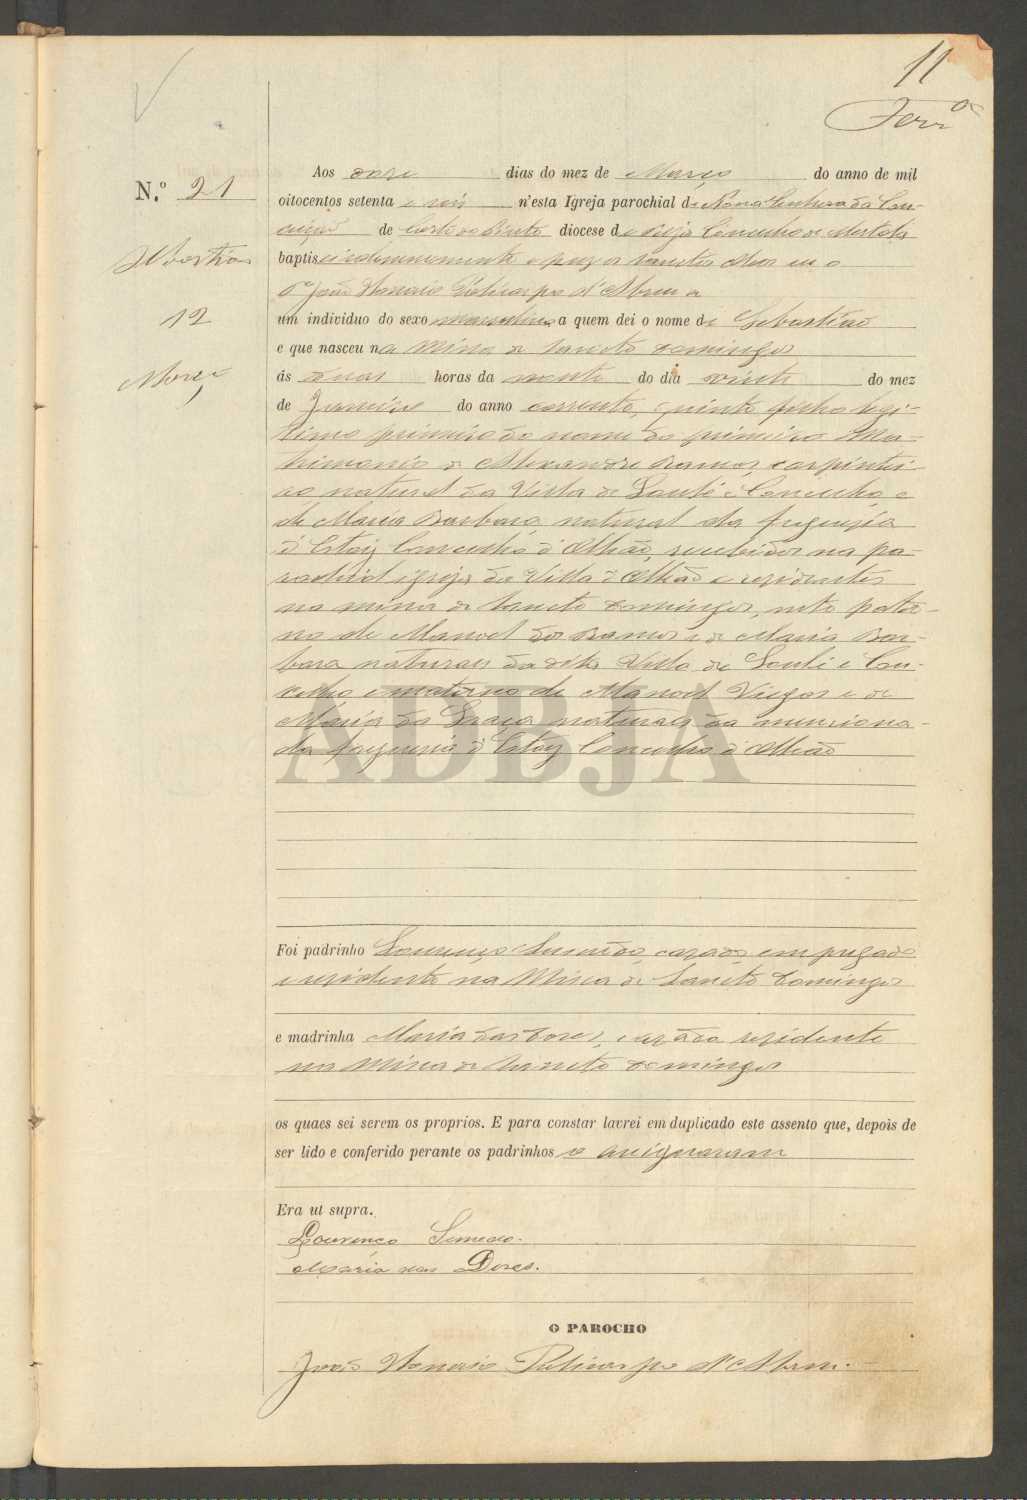 11
Ferr.ª
N.º 21
Sebastião
12
Março
Aos doze dias do mez de Março do anno de mil
oitocentos setenta e seis n'esta Igreja parochial de Nossa Senhora da Con-
ceição de Corte do Pinto diocese de Beja Concelho de Mertola
baptisei solemnemente e puz os sanctos oleos eu o
P.e João Ignacio Policarpo d'Abreu a
um individuo do sexo masculino a quem dei o nome de Sebastião
e que nasceu na Mina de Sancto Domingos
ás duas horas da noute do dia vinte do mez
de Janeiro do anno corrente, quinto filho legi-
timo primeiro do nome do primeiro Ma-
trimonio de Alexandre Ramos, carpintei-
ro natural da Villa de Loulé e Concelho, e
de Maria Barbara, natural da freguezia
d'Estoy Concelho d'Olhão, recebidos na pa-
rochial igreja da Villa d'Olhão e residentes
na mina de Sancto Domingos, neto pater-
no de Manoel dos Ramos e de Maria Bar-
bara naturaes da dita Villa de Loulé e Con-
celho e materno de Manoel Viegas e de
Maria da Graça naturaes da menciona-
da freguezia d'Estoy Concelho d'Olhão
ADBJA
Foi padrinho Lourenço Simeão, casado, empregado
e residente na Mina de Sancto Domingos
e madrinha Maria das Dores, casada residente
na Mina de Sancto Domingos
os quaes sei serem os proprios. E para constar lavrei em duplicado este assento que, depois de
ser lido e conferido perante os padrinhos o assignaram
Era ut supra.
Lourenço Simeão.
Maria das Dores.
O PAROCHO
João Ignacio Policarpo d'Abreu.